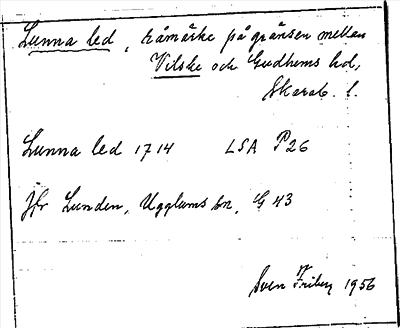 Lunna led, råmärke på gränsen mellan
Vilske och Gudhems hd,
Skarab. l.
Lunna led 1714 LSA P26
Jfr Lunden, Ugglums sn, G 43
Sven Friberg 1956